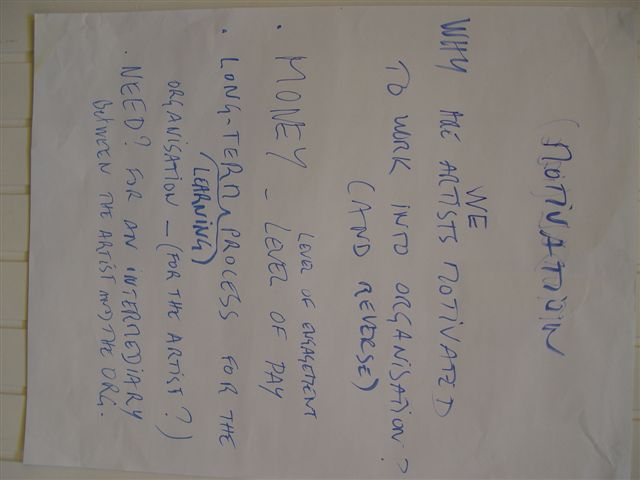 (MOTIVATION
WHY ARE WE ARTISTS MOTIVATED
TO WORK INTO ORGANISATION?
(AND REVERSE)
LEVEL OF ENGAGEMENT
• MONEY - LEVEL OF PAY
• LONG-TERM PROCESS FOR THE
(LEARNING)
ORGANISATION - (FOR THE ARTIST?)
• NEED? FOR AN INTERMEDIARY
BETWEEN THE ARTIST AND THE ORG.